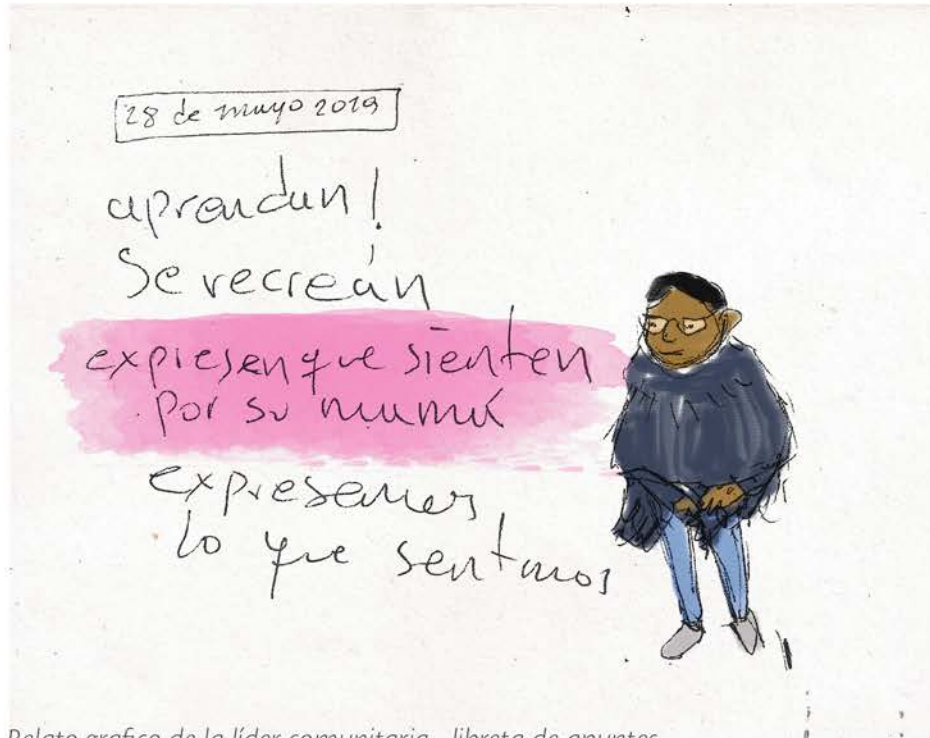 28 de mayo 2019
aprendan!
Se recreán
expresen que sienten
por su mamá
expresamos
lo que sentimos
Relato grafico de la líder comunitaria - libreta de apuntes